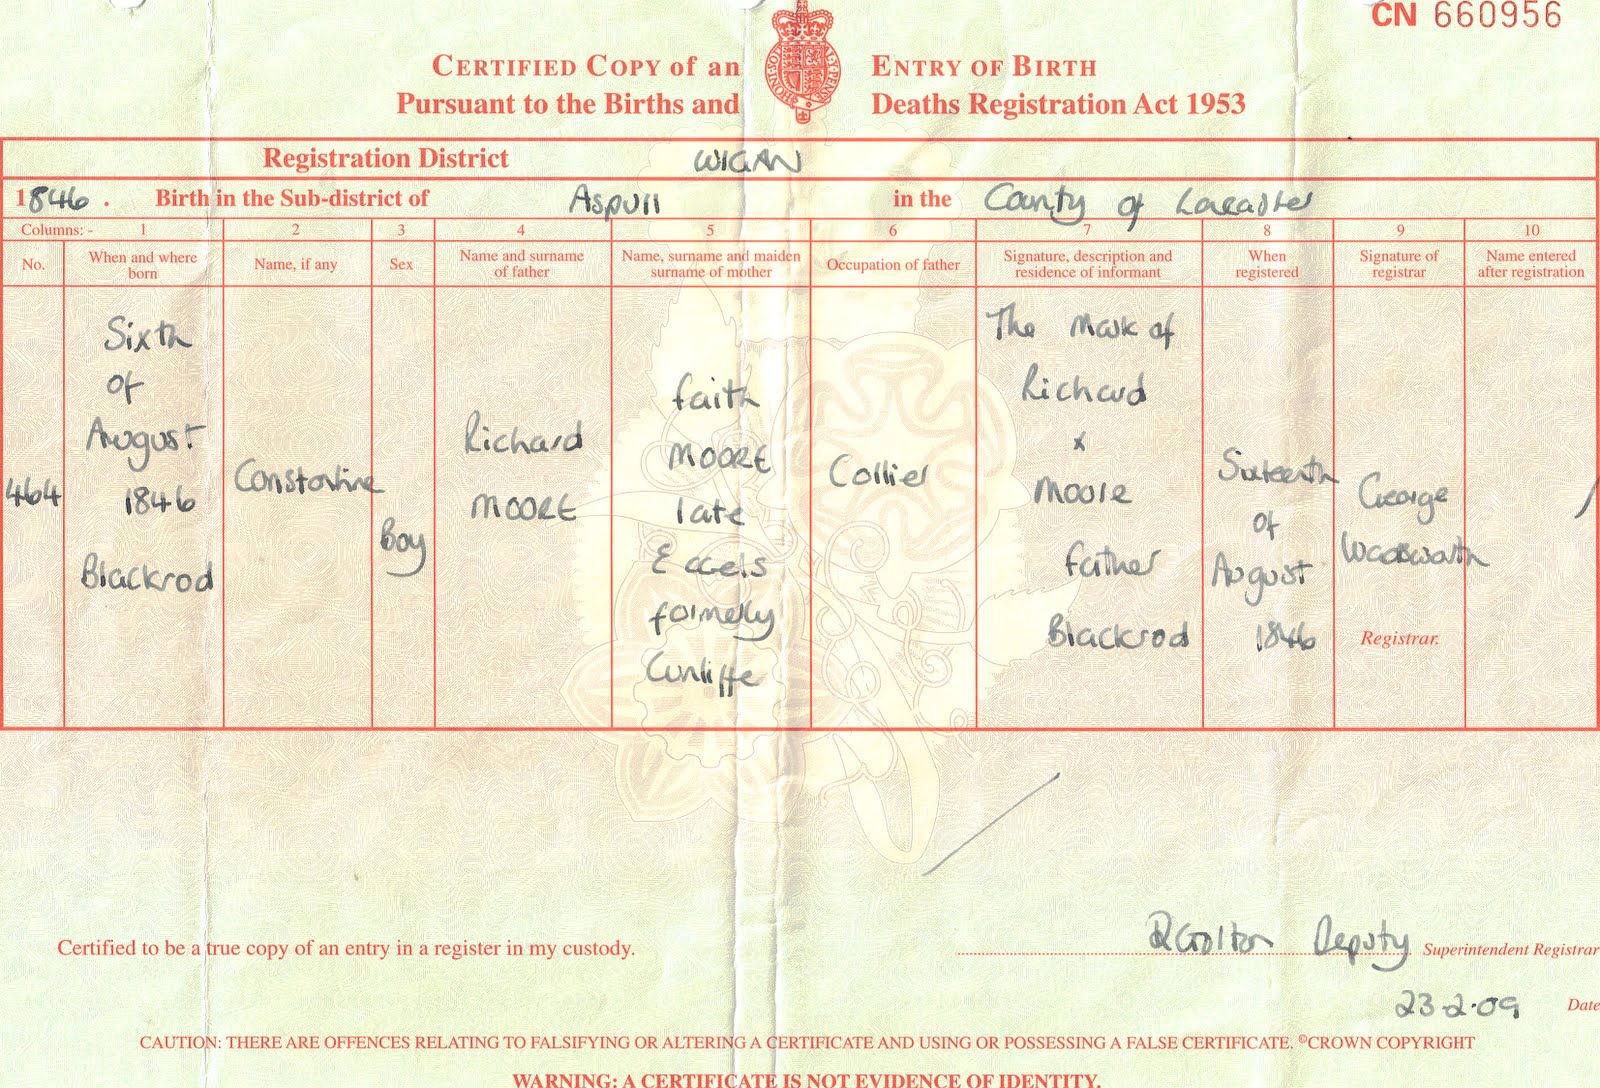 CN 660956
CERTIFIED COPY of an ENTRY OF BIRTH
Pursuant to the Births and Deaths Registration Act 1953
Registration District WIGAN
1846. Birth in the Sub-district of Aspull in the County of Lancaster
Columns:- 1 2 3 4 5 6 7 8 9 10
No.
When and where
born
Name, if any
Sex
Name and surname
of father
Name, surname and maiden
surname of mother
Occupation of father
Signature, description and
residence of informant
When
registered
Signature of
registrar
Name entered
after registration
464
Sixth
of
August
1846
Blackrod
Constantine
Boy
Richard
MOORE
faith
MOORE
late
Eccels
formerly
Cunliffe
Collier
The Mark of
Richard
x
Moore
father
Blackrod
Sixteenth
of
August
1846
George
Wadsworth
Registrar.
Certified to be a true copy of an entry in a register in my custody.
Deputy Superintendent Registrar
23-2-09 Date
CAUTION: THERE ARE OFFENCES RELATING TO FALSIFYING OR ALTERING A CERTIFICATE AND USING OR POSSESSING A FALSE CERTIFICATE. ©CROWN COPYRIGHT
WARNING: A CERTIFICATE IS NOT EVIDENCE OF IDENTITY.